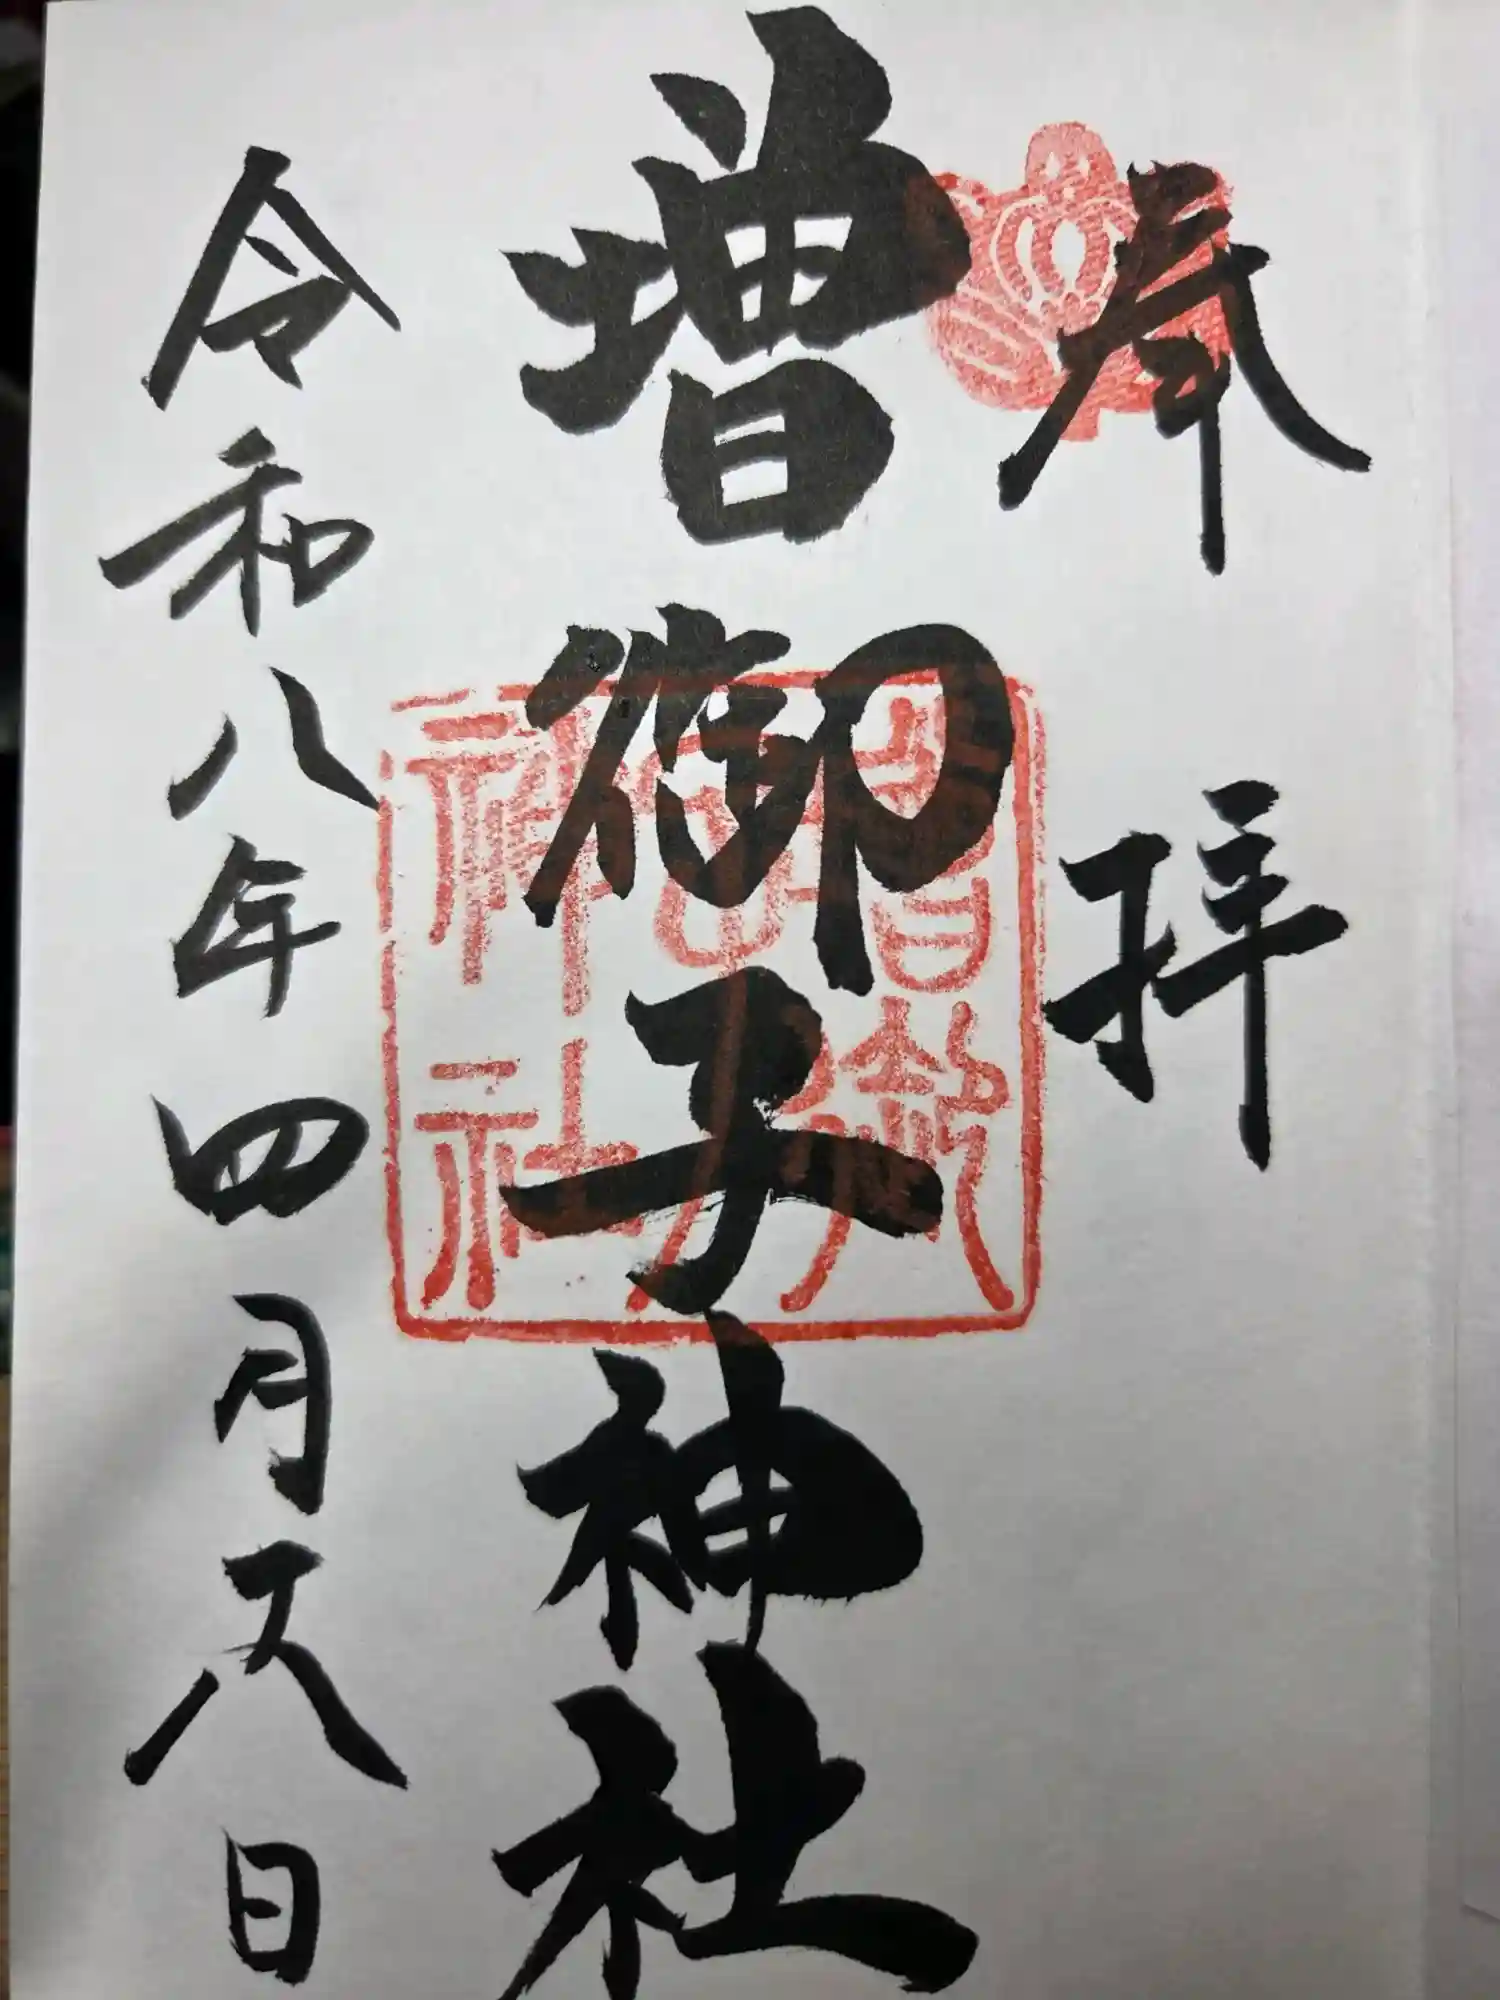 奉拝
増御子神社
令和八年四月 日
神社